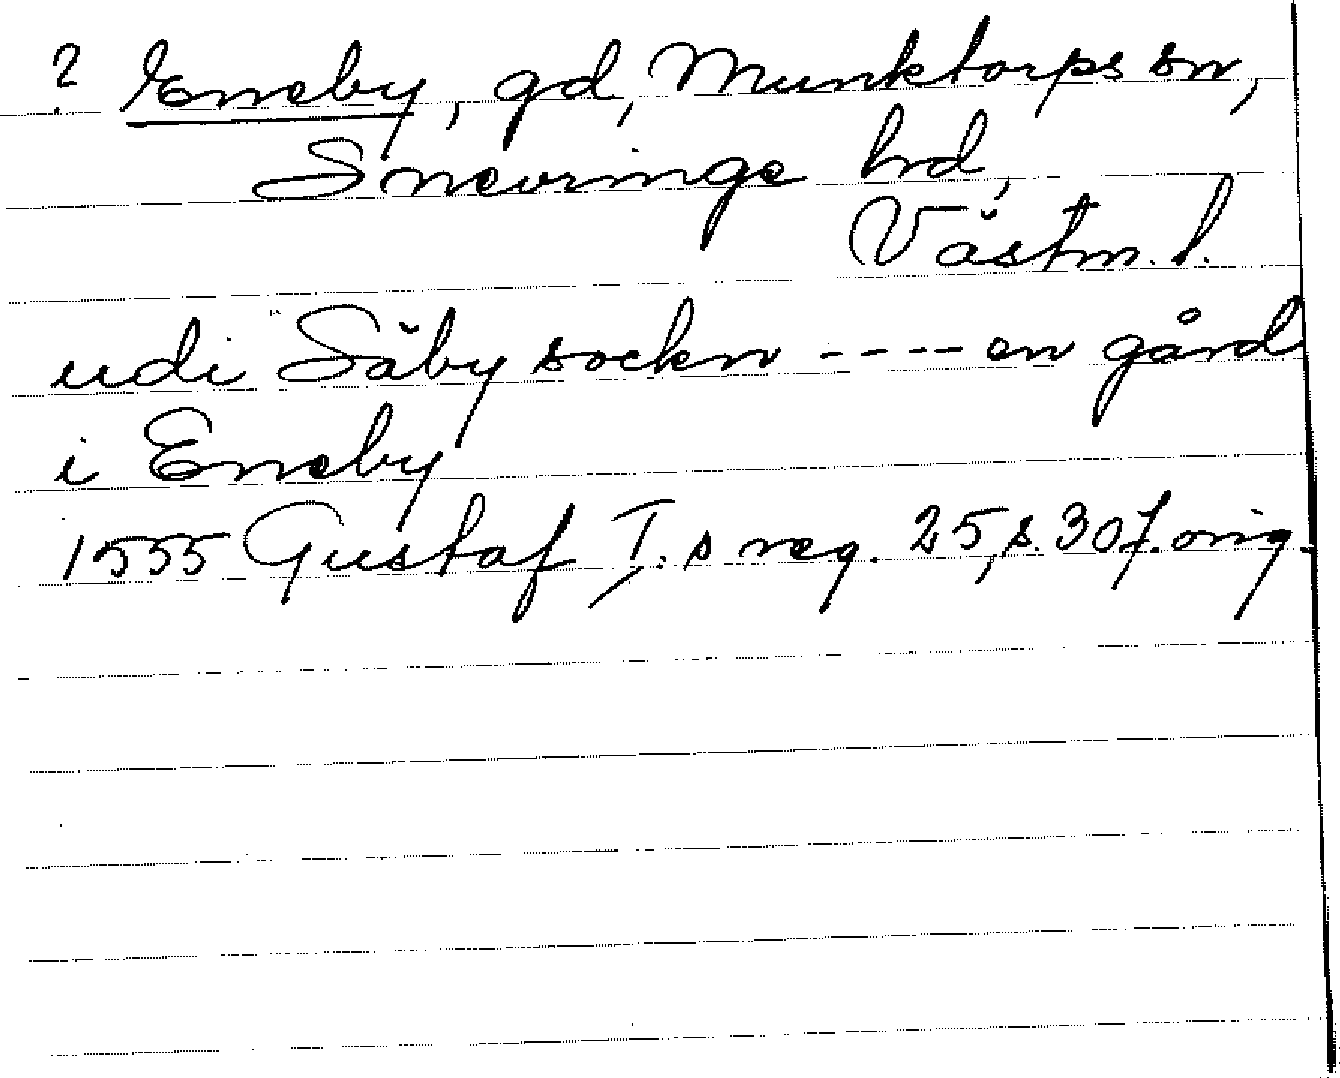 ? Eneby, gd, Munktorps sn,
Snevringe hd,
Västm. l.
udi Säby sockn ---- en gård
i Eneby
1555 Gustaf I.s reg. 25, s. 307. orig.